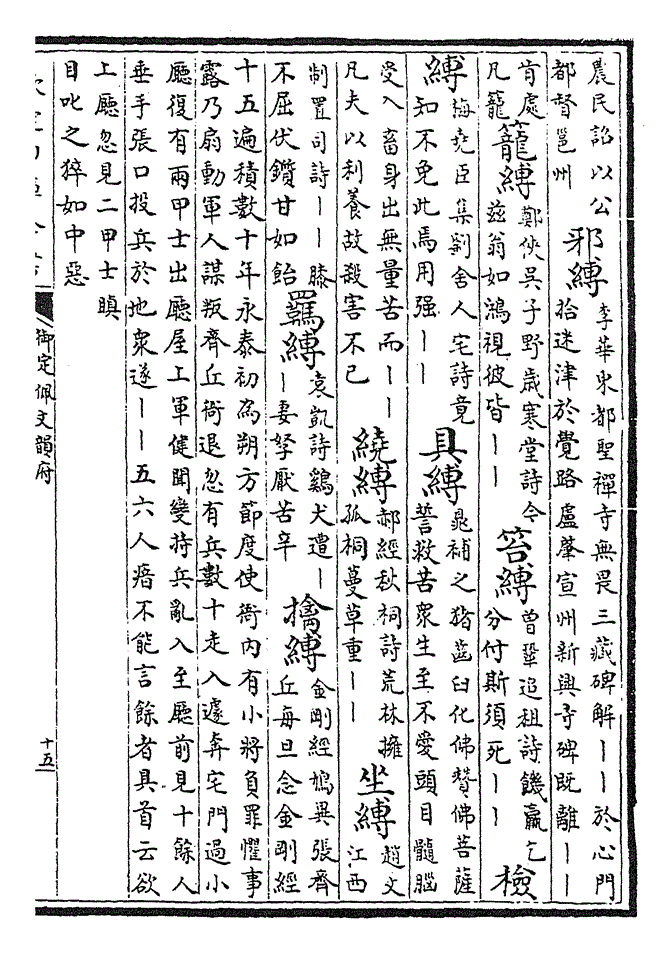 農民詒以公
都督邕州
邪縛
李華東都聖禪寺無畏三藏碑解——於心門
拾迷津於覺路盧肇宣州新興寺碑既離——
籠縛
鄭俠吳子野歲寒堂詩今
肯處
凡籠
兹翁如鴻視彼皆——
笞縛
曾鞏追祖詩饑羸乞
分付斯須死——
檢
縛
梅堯臣集劉舍人宅詩竟
知不免此焉用强——
具縛
晁補之豬齒臼化佛贊佛菩薩
誓救苦衆生至不愛頭目髓腦
受入畜身出無量苦而——
凡夫以利養故殺害不已
繞縛
郝經秋祠詩荒林擁
孤桐蔓草重——
坐縛
趙文
江西
制置司詩——膝
不屈伏鑕甘如飴
羈縛
袁凱詩鷄犬遭—
—妻孥厭苦辛
擒縛
金剛經鳩異張齊
丘每旦念金剛經
十五遍積數十年永泰初為朔方節度使衙内有小將負罪懼事
露乃扇動軍人謀叛齊丘衙退忽有兵數十走入遽奔宅門過小
廳復有兩甲士出廳屋上軍健聞變持兵亂入至廳前見十餘人
垂手張口投兵於地衆遂——五六人瘖不能言餘者具首云欲
上廳忽見二甲士瞋
目叱之猝如中惡
御定佩文韻府
十五